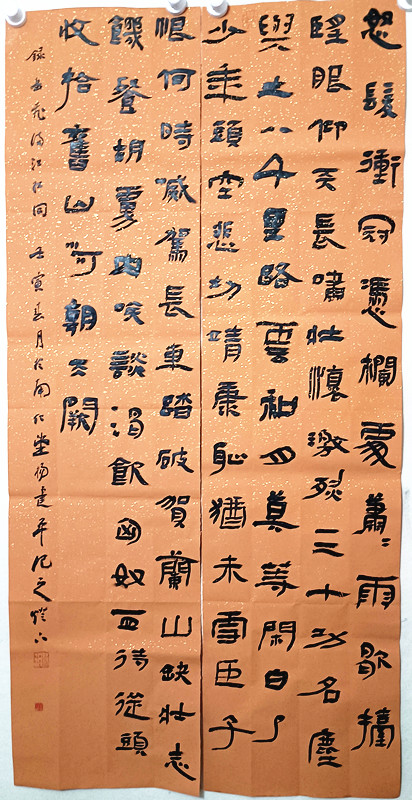 怒髮衝冠憑欄處蕭〻雨歇擡
望眼仰天長嘯壯懷激烈三十功名塵
與土八千里路雲和月莫等閑白了
少年頭空悲切靖康恥猶未雪臣子
恨何時滅駕長車踏破賀蘭山缺壯志
饑餐胡虜肉笑談渴飲匈奴血待從頭
收拾舊山河朝天闕
錄岳飛滿江紅詞 壬寅春月於堂楊建平